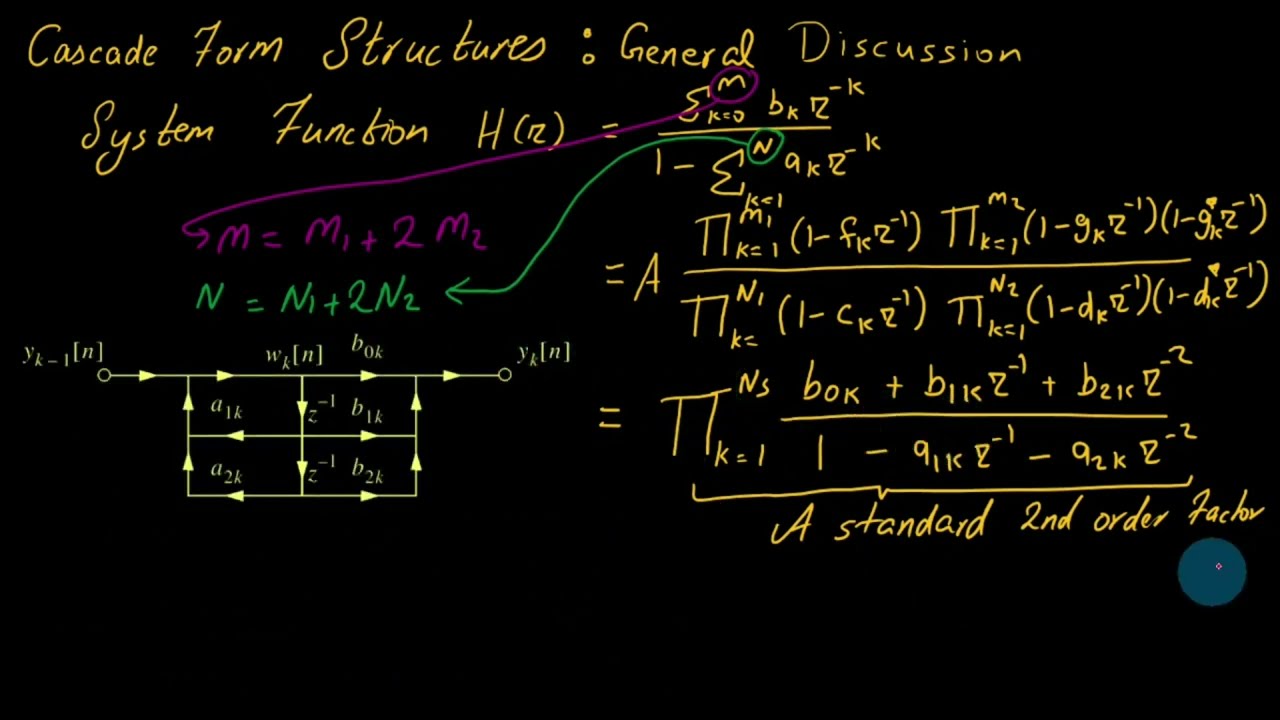 Cascade Form Structures : General Discussion
System Function H(z) = Σ_{k=0}^{M} b_k z^{-k} / 1 - Σ_{k=1}^{N} a_k z^{-k}
M = M_1 + 2 M_2
N = N_1 + 2N_2
= A ∏_{k=1}^{M_1} (1 - f_k z^{-1}) ∏_{k=1}^{M_2} (1 - g_k z^{-1})(1 - g_k^* z^{-1}) / ∏_{k=}^{N_1} (1 - c_k z^{-1}) ∏_{k=1}^{N_2} (1 - d_k z^{-1})(1 - d_k^* z^{-1})
= ∏_{k=1}^{N_s} b_{0k} + b_{1k} z^{-1} + b_{2k} z^{-2} / 1 - a_{1k} z^{-1} - a_{2k} z^{-2}
A standard 2nd order Factor
y_{k-1}[n] w_k[n] b_{0k} y_k[n]
a_{1k} z^{-1} b_{1k}
a_{2k} z^{-1} b_{2k}